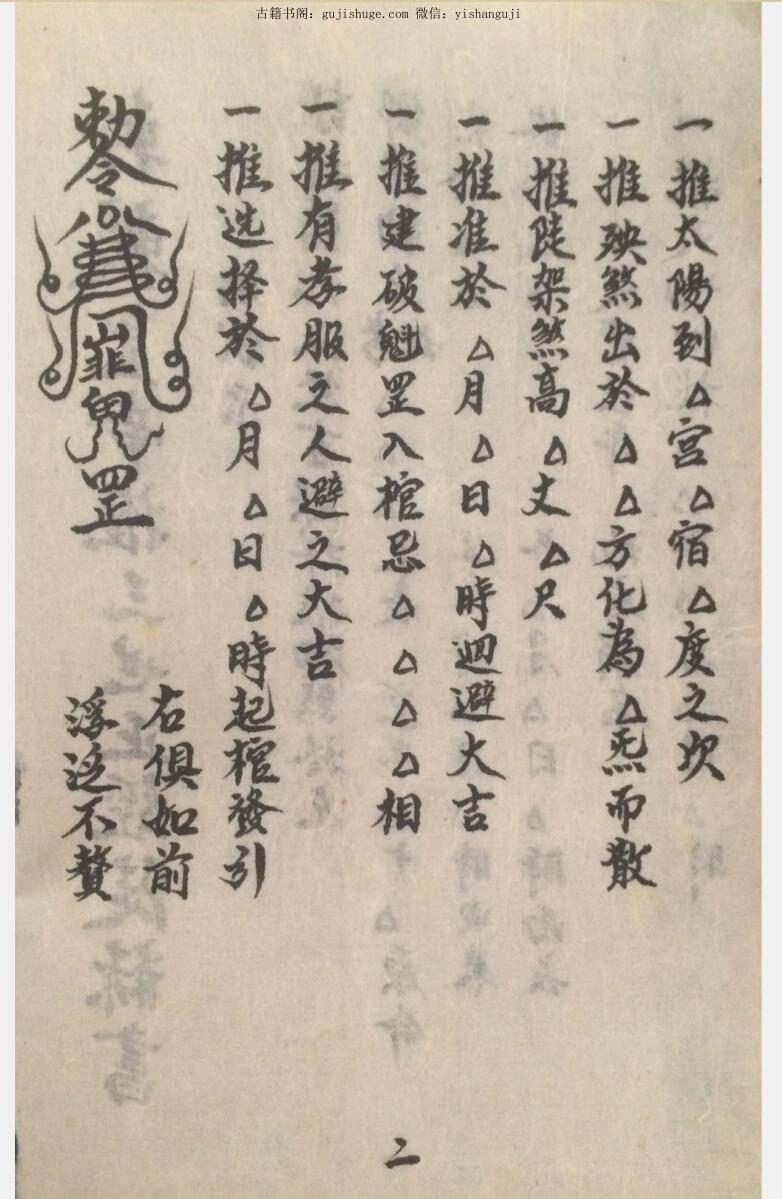 古籍书阁：gujishuge.com 微信：yishanguji
一推太陽到△宫△宿△度之次
一推殃煞出於△△方化為△炁而散
一推陡架煞高△丈△尺
一推准於△月△日△時迴避大吉
一推建破魁罡入棺忌△△△△相
一推有孝服之人避之大吉
一推选择於△月△日△時起棺發引
右俱如前
浮泛不贅
敕令
罡
二